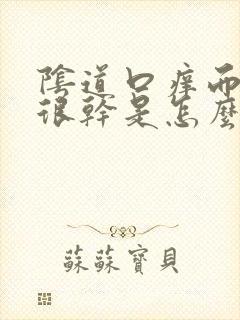 陰道口癢而
很幹是怎麼
蘇蘇寶貝